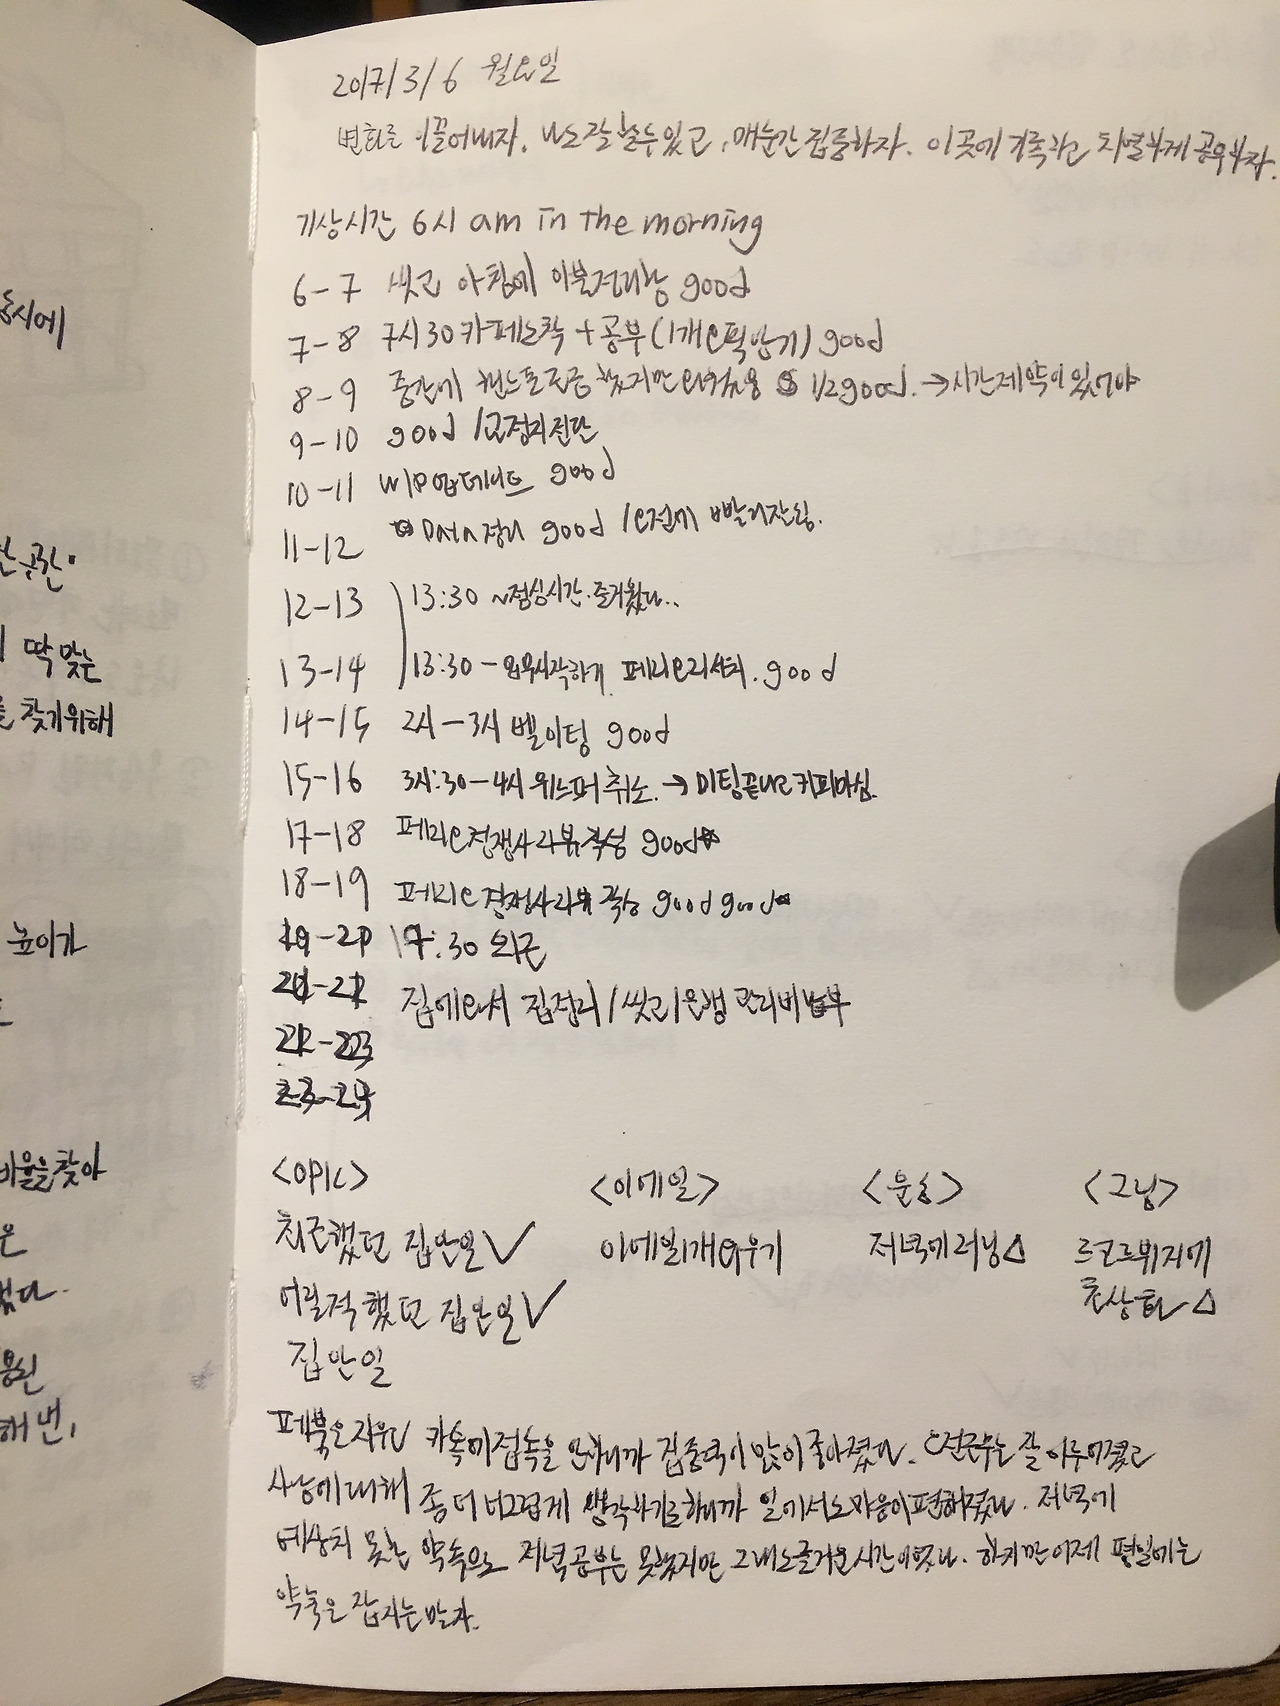 동시에
한 공간"
딱 맞는
를 찾기위해
높이가
비율을 찾아
은
했다.
용된
해 번,
2017/3/6 월요일
변화를 이끌어내자. 나도 잘 할 수 있고, 매순간 집중하자. 이곳에 기록하고 치열하게 공부하자.
기상시간 6시 am in the morning
6-7 씻고 아침에 이불정리함 good
7-8 7시30 카페도착 + 공부 (1개 오픽암기) good
8-9 중간에 핸드폰 조금 했지만 1/2good. → 시간제약이 있어야
9-10 good / 고정지진단
10-11 WIP업데이트 good
11-12 DATA정리 good / 오전에 빨리잔왕.
12-13 13:30 ~점심시간. 즐거웠다..
13-14 13:30 - 업무시작하기. 페리오리서치. good
14-15 2시-3시 벨미팅 good
15-16 3시:30-4시 위스퍼 취소. → 미팅끝나고 커피마심.
17-18 페리오경쟁사리뷰작성 good
18-19 페리오경쟁사리뷰작성 good good
19-20 19:30 외근
20-21 집에와서 집정리 / 씻고 / 은행 관리비납부
21-22
23-24
<OPIC> <이메일> <운동> <그림>
최근했던 집안일 ✓ 이메일1개외우기 저녁에 러닝 △ 르코르뷔지에
어릴적했던 집안일 ✓ 흉상 △
집안일
페북은 지우고 카톡에 접속을 안하니까 집중력이 많이 좋아졌다. 오전근무는 잘 이루어졌고
사람에 대해 좀 더 너그럽게 생각하기로하니까 일에서도 마음이 편해졌다. 저녁에
예상치 못한 약속으로 저녁공부는 못했지만 그래도 즐거운 시간이였다. 하지만 이제 평일에는
약속은 잡지는 말자.